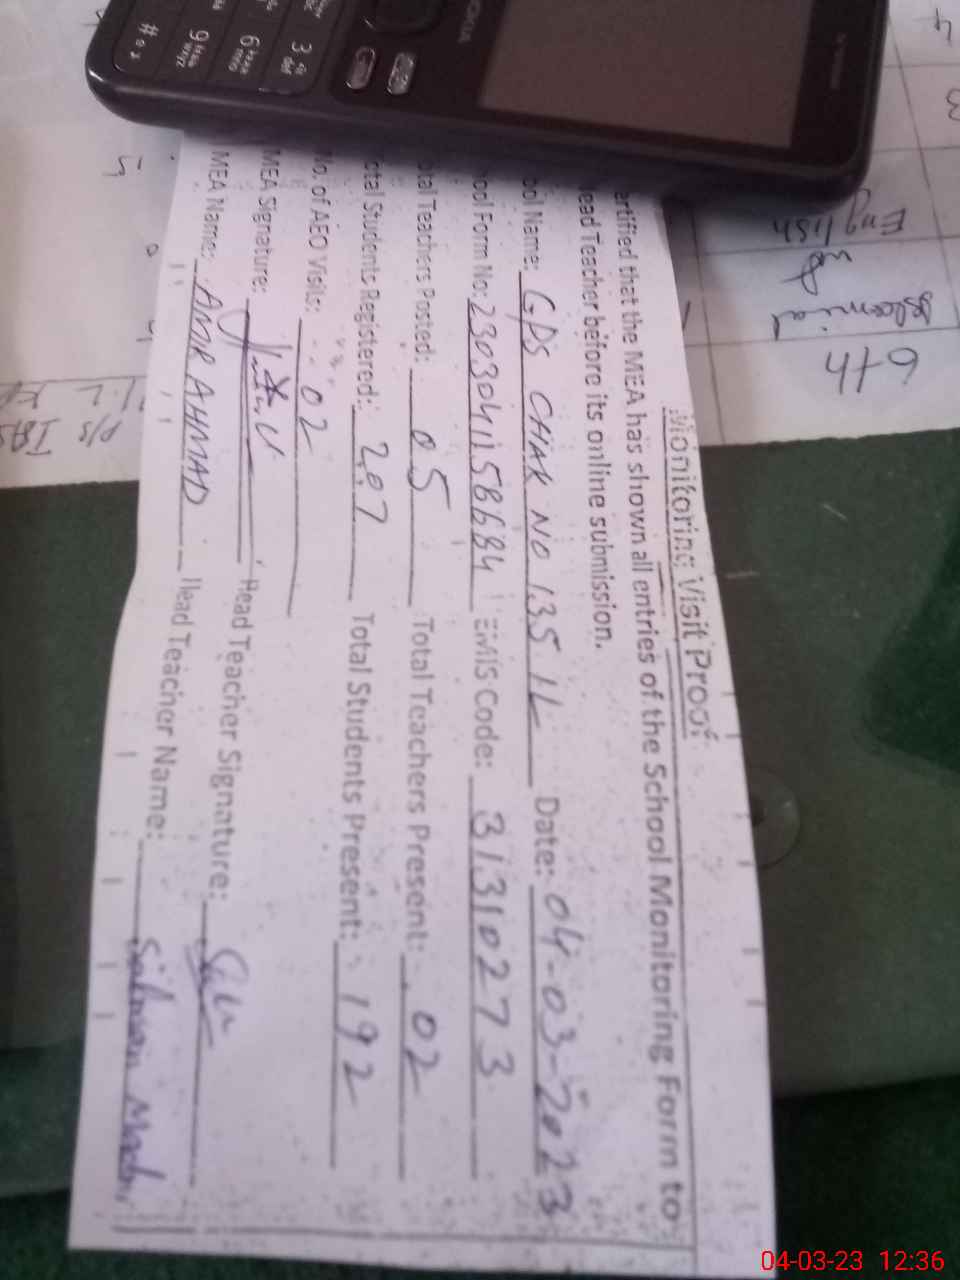 Monitoring Visit Proof
ertified that the MEA has shown all entries of the School Monitoring Form to
ead Teacher before its online submission.
ool Name: GPS CHAK NO 135 1L Date: 04-03-2023
ool Form No: 230304158684 EMIS Code: 31310273
otal Teachers Posted: 05 Total Teachers Present: 02
otal Students Registered: 207 Total Students Present: 192
No. of AEO Visits: 02
MEA Signature: Head Teacher Signature:
MEA Name: AMIR AHMAD Head Teacher Name: Salman
NOKIA
3 def
6 mno
9 wxyz
#
6th
English
4
3
5
P/S
04-03-23 12:36